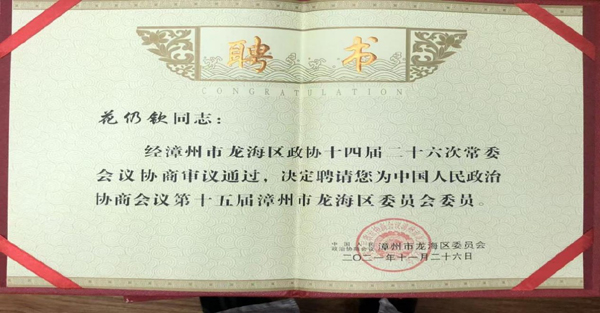 聘书
CONGRATULATION
花仍钦同志：
经漳州市龙海区政协十四届二十六次常委
会议协商审议通过，决定聘请您为中国人民政治
协商会议第十五届漳州市龙海区委员会委员。
中国人民
政治协商会议 漳州市龙海区委员会
二〇二一年十一月二十六日